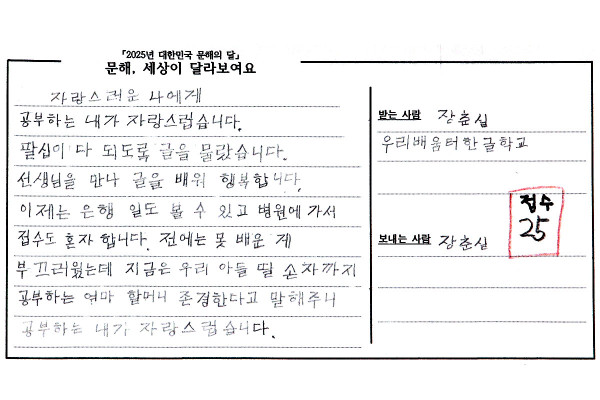 「2025년 대한민국 문해의 달」
문해, 세상이 달라보여요
자랑스러운 나에게
공부하는 내가 자랑스럽습니다.
팔십이 다 되도록 글을 몰랐습니다.
선생님을 만나 글을 배워 행복합니다.
이제는 은행 일도 볼 수 있고 병원에 가서
접수도 혼자 합니다. 전에는 못 배운 게
부끄러웠는데 지금은 우리 아들 딸 손자까지
공부하는 엄마 할머니 존경한다고 말해주니
공부하는 내가 자랑스럽습니다.
받는 사람 장춘심
우리배움터한글학교
접수
25
보내는 사람 장춘심